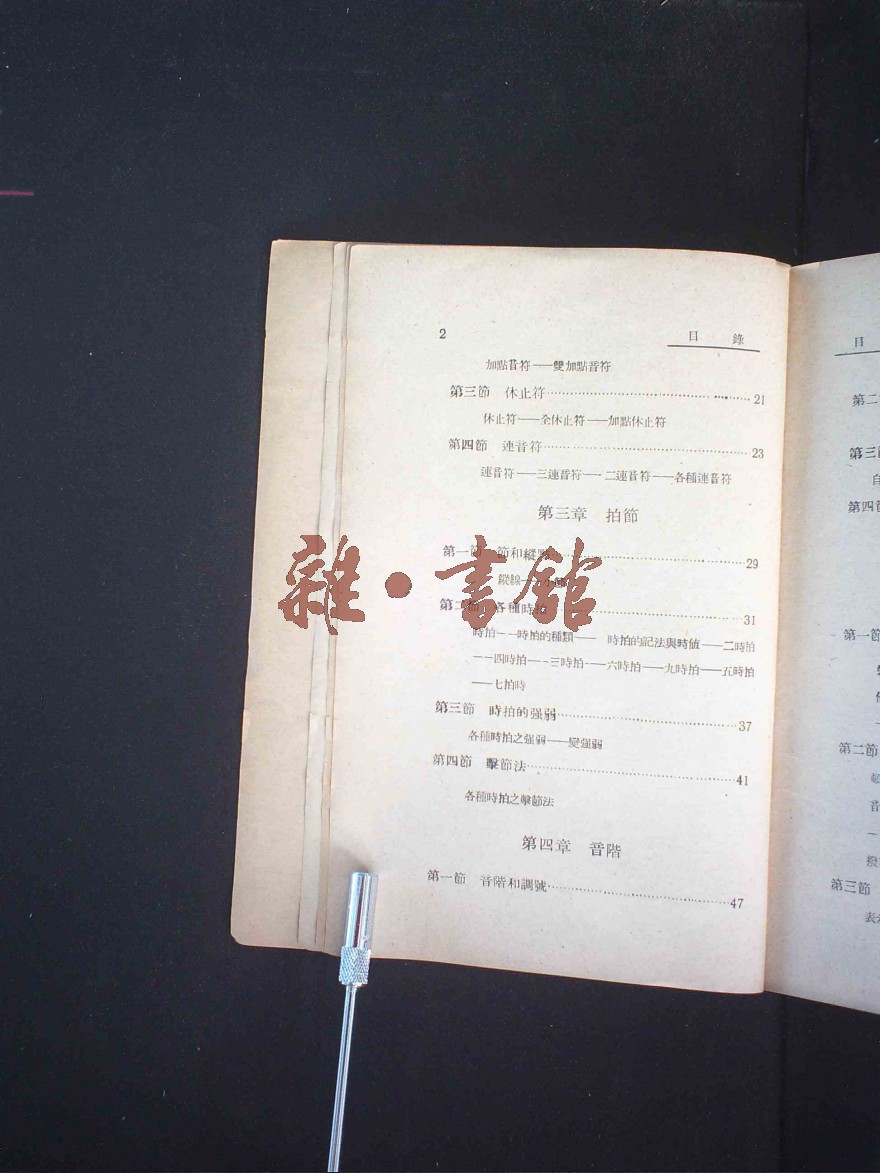 2 目錄
加點音符——雙加點音符
第三節 休止符 21
休止符——全休止符——加點休止符
第四節 連音符 23
連音符——三連音符——二連音符——各種連音符
第三章 拍節
第一節 節和縱 29
縱線 小
第二 各種時拍 31
時拍——時拍的種類—— 時拍的記法與時值——二時拍
——四時拍——三時拍——六時拍——九時拍——五時拍
——七拍時
第三節 時拍的强弱 37
各種時拍之强弱——變强弱
第四節 擊節法 41
各種時拍之擊節法
第四章 音階
第一節 音階和調號 47
雜·書館
目
第二
第三節
自
第四節
第一節
第二節
音
撥
第三節
表